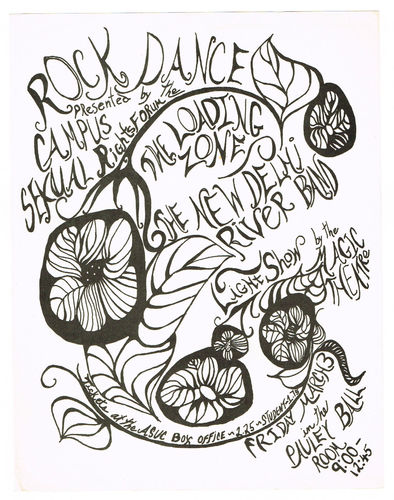 ROCK DANCE
Presented by
CAMPUS
SEXUAL RIGHTS FORUM the
THE LOADING
ZONE
THE NEW DELHI
RIVER BAND
LIGHT SHOW by the
MAGIC
THEATRE
Tickets at the ASUC BOX OFFICE ~ 2.25 ~ STUDENTS 1.75
FRIDAY MARCH 3
in the
PAULEY BALL
ROOM
9:00 -
12:45